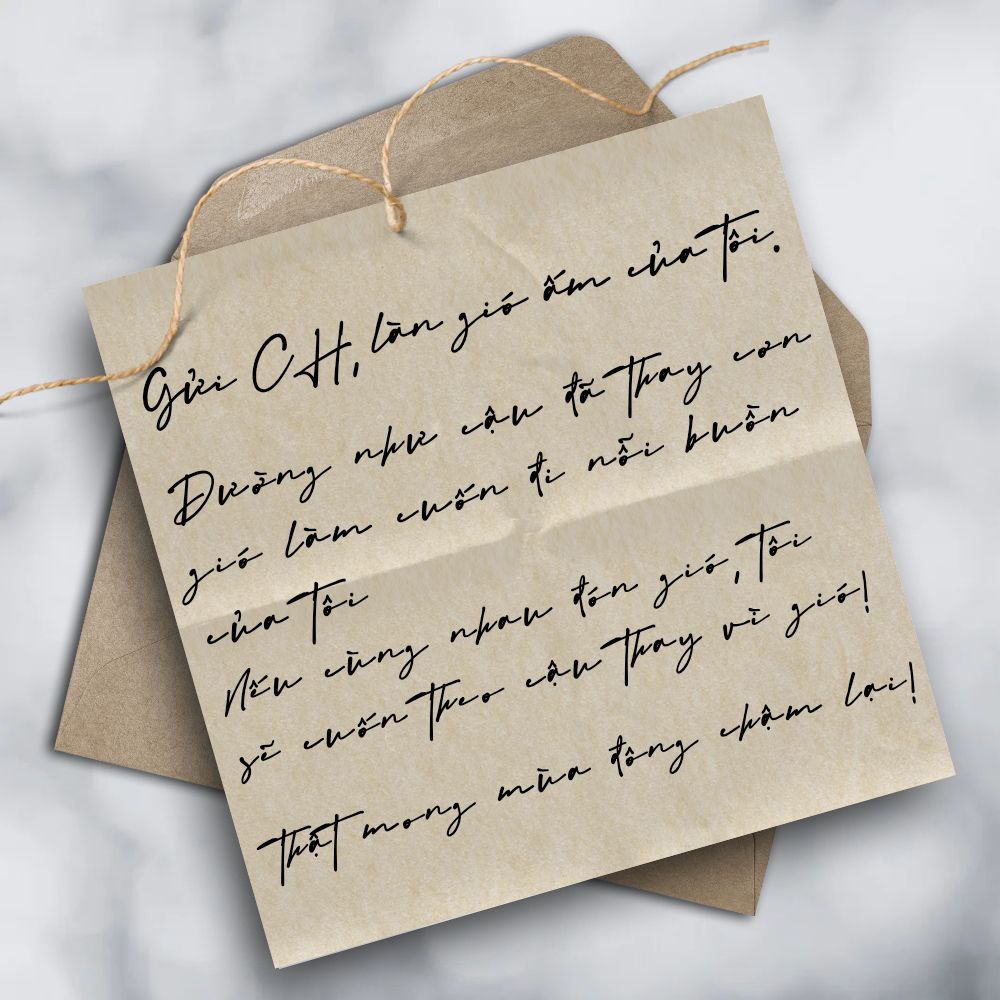 Gửi CH, làn gió ấm của tôi.
Dường như cậu đã thay cơn
gió làm cuốn đi nỗi buồn
của tôi
Nếu cùng nhau đón gió, tôi
sẽ cuốn theo cậu thay vì gió!
thật mong mùa đông chậm lại!